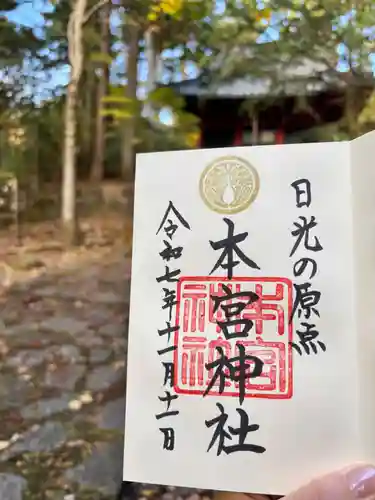 日光の原点
本宮神社
本宮神社
令和七年十一月十一日